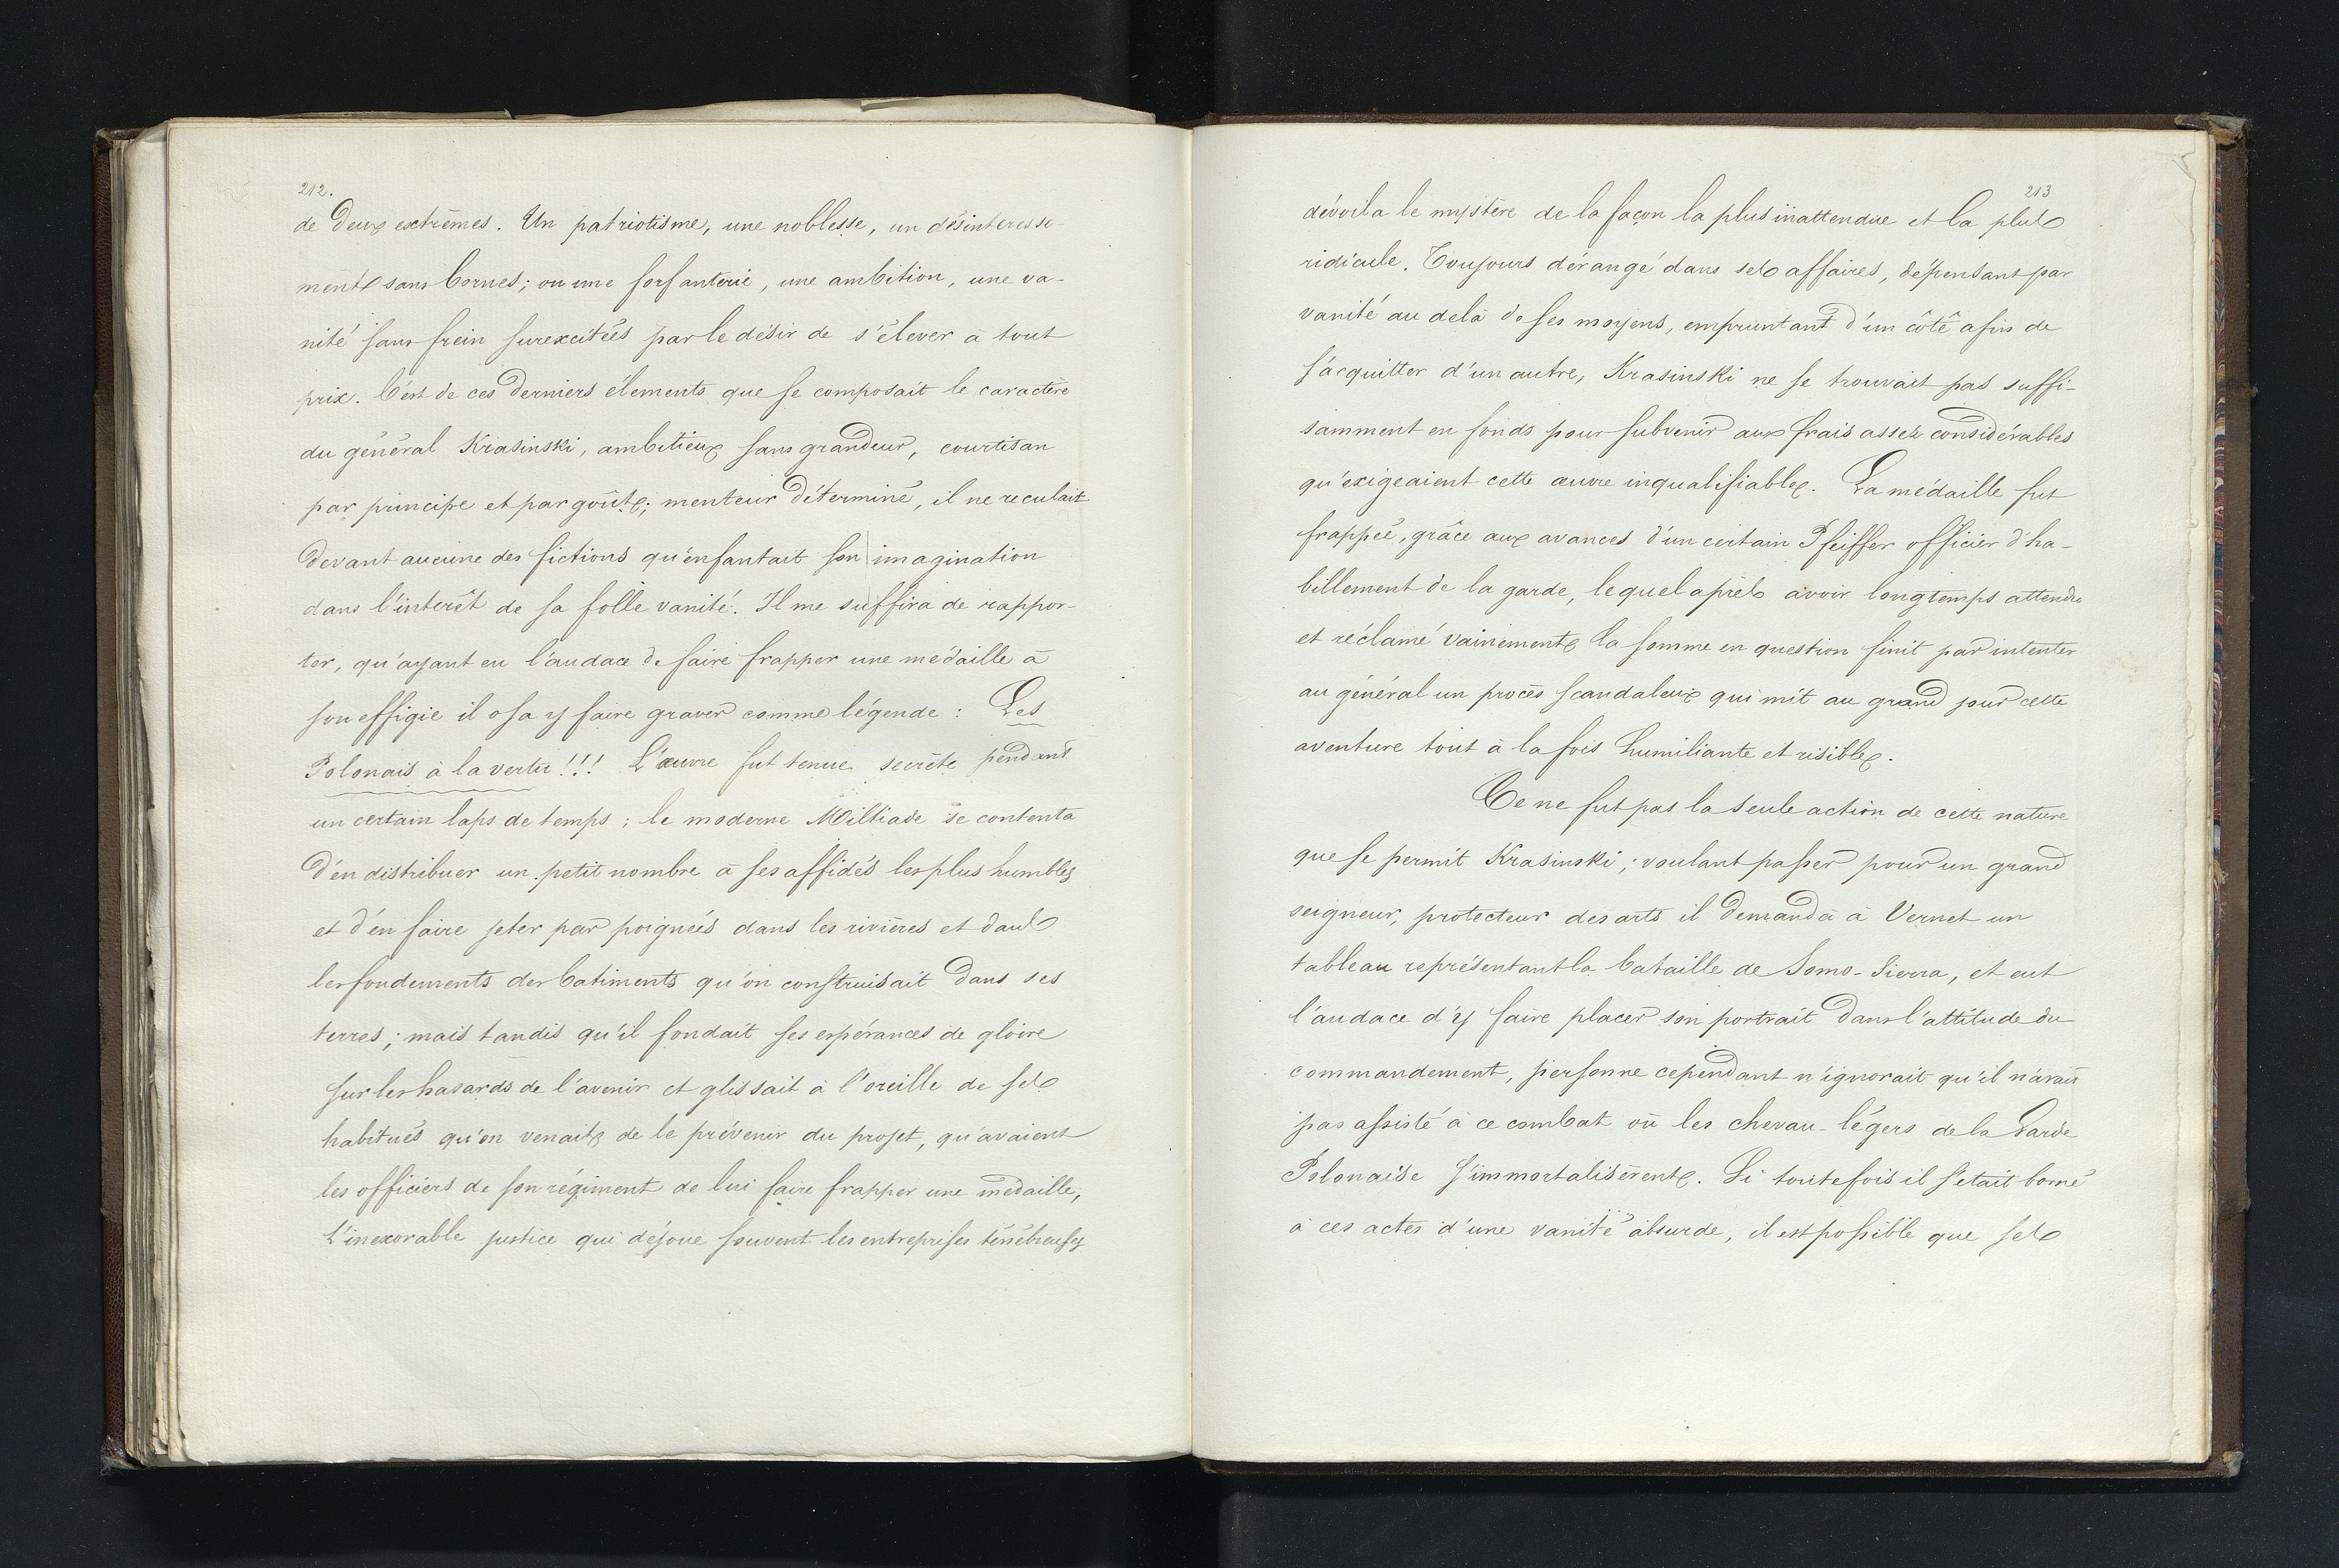 212.
de deux extrêmes. Un patriotisme, une noblesse, un désinteresse-
ment sans bornes; ou une forfanterie, une ambition, une va-
nité sans frein surexcitées par le désir de s'élever à tout
prix. C'est de ces derniers élements que se composait le caractère
du général Krasinski, ambitieux sans grandeur, courtisan
par principe et par goût; menteur déterminé, il ne reculait
devant aucune des fictions qu'enfantait son imagination
dans l'interêt de sa folle vanité. Il me suffira de rappor-
ter, qu'ayant eu l'audace de faire frapper une médaille à
son effigie il osa y faire graver comme légende: Les
Polonais à la vertu!!! L'œuvre fut tenue secrète pendant
un certain laps de temps; le moderne Miltiade se contenta
d'en distribuer un petit nombre à ses affidés les plus humbles
et d'en faire jeter par poignées dans les rivières et dans
les fondements des batiments qu'on construisait dans ses
terres; mais tandis qu'il fondait ses espérances de gloire
sur les hasards de l'avenir et glissait à l'oreille de ses
habitués qu'on venait de le prévenir du projet, qu'avaient
les officiers de son régiment de lui faire frapper une médaille,
l'inexorable justice qui déjoue souvent les entreprises ténébreuses
213
dévoila le mystère de la façon la plus inattendue et la plus
ridicule. Toujours dérangé dans ses affaires, dépensant par
vanité au delà de ses moyens, empruntant d'un côté afin de
s'acquitter d'un autre, Krasinski ne se trouvait pas suffi-
samment en fonds pour subvenir aux frais assez considérables
qu'exigeaient cette œuvre inqualifiable. La médaille fut
frappée, grâce aux avances d'un certain Pfeiffer officier d'ha-
billement de la garde, lequel après avoir longtemps attendu
et réclamé vainement la somme en question finit par intenter
au général un procès scandaleux qui mit au grand jour cette
aventure tout à la fois humiliante et risible.
Ce ne fut pas la seule action de cette nature
que se permit Krasinski; voulant passer pour un grand
seigneur, protecteur des arts il demanda à Vernet un
tableau représentant la bataille de Somo-Sierra, et eut
l'audace d'y faire placer son portrait dans l'attitude du
commandement, personne cependant n'ignorait qu'il n'avait
pas assisté à ce combat où les chevau-légers de la Garde
Polonaise s'immortalisèrent. Si toutefois il s'était borné
à ces actes d'une vanité absurde, il est possible que ses